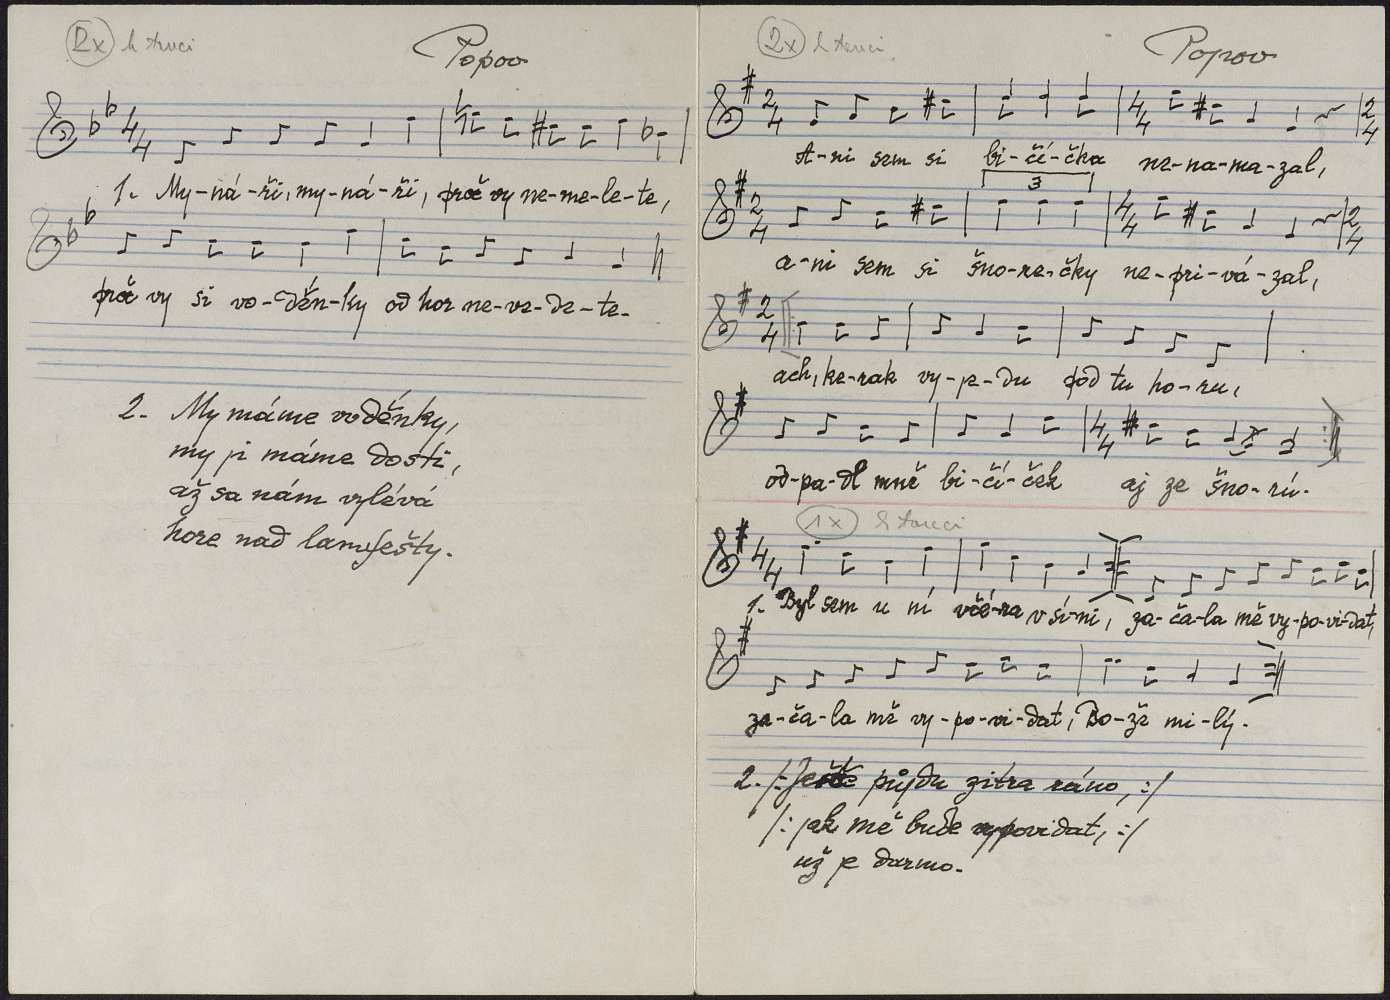 2x k tanci
Popov
4/4
1. My-ná-ři, my-ná-ři, proč vy ne-me-le-te,
proč vy si vo-děn-ky od hor ne-ve-de-te.
2. My máme voděnky,
my ji máme dosti,
až sa nám vylévá
hore nad
2x k tanci
Popov
2/4 4/4 2/4
A-ni sem si bi-čí-čka ne-na-ma-zal,
3
2/4 4/4 2/4
a-ni sem si šňo-re-čky ne-pri-vá-zal,
2/4
ach, ke-rak vy-je-du pod tu ho-ru,
4/4
od-pa-dl mně bi-čí-ček aj ze šňo-rú.
1x k tanci
4/4
1. Byl sem u ní včé-ra v sí-ni, za-ča-la mě vy-po-vi-dat,
za-ča-la mě vy-po-vi-dat, Bo-že mi-lý.
2. /: Ješče půjdu zitra ráno, :/
/: jak mě bude vypovidat, :/
už je darmo.